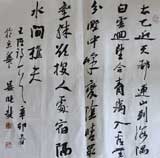 太乙近天都連山到海隅
白雲迴望合青靄入看無
分野中峰變陰晴眾
壑殊欲投人處宿隔
水問樵夫
王維詩
辛卯